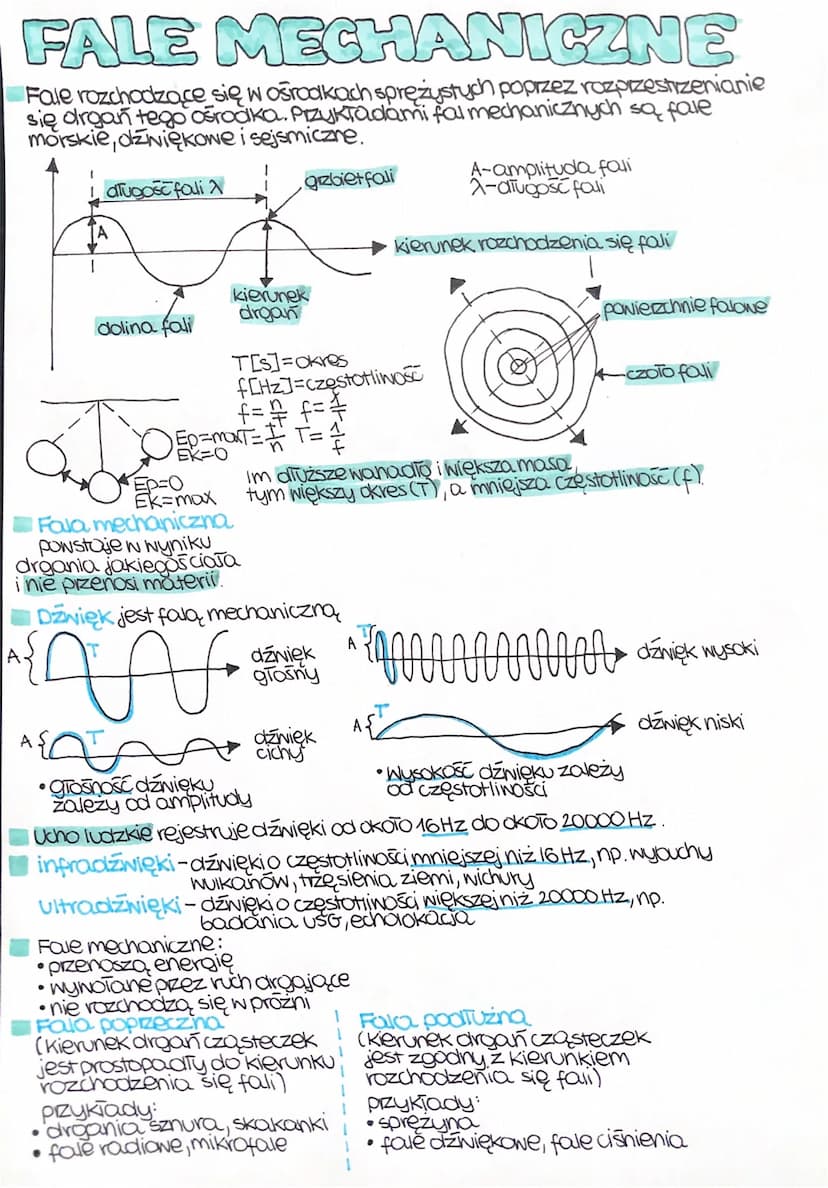 FALE MECHANICZNE
Fale rozchodzące się w ośrodkach sprężystych poprzez rozprzestrzenianie
się drgań tego ośrodka. Przykładami fal mechanicznych są fale
morskie, dźwiękowe i sejsmiczne.
długość fali λ
grzbiet fali
A-amplituda fali
λ-długość fali
A
kierunek rozchodzenia się fali
dolina fali
kierunek
drgań
powierzchnie falowe
czoło fali
T[s]=okres
f[Hz]=częstotliwość
f=n/T f=1/T
Ep=max
Ek=0
T=t/n T=1/f
Ep=0
Ek=max
Im dłuższe wahadło i większa masa,
tym większy okres (T), a mniejsza częstotliwość (f).
Fala mechaniczna
powstaje w wyniku
drgania jakiegoś ciała
i nie przenosi materii.
Dźwięk jest falą mechaniczną
A T
dźwięk
głośny
A T
dźwięk wysoki
A T
dźwięk
cichy
A T
dźwięk niski
• głośność dźwięku
zależy od amplitudy
• wysokość dźwięku zależy
od częstotliwości
Ucho ludzkie rejestruje dźwięki od około 16Hz do około 20000Hz.
infradźwięki - dźwięki o częstotliwości mniejszej niż 16Hz, np. wybuchy
wulkanów, trzęsienia ziemi, wichury
ultradźwięki - dźwięki o częstotliwości większej niż 20000Hz, np.
badania USG, echolokacja
Fale mechaniczne:
• przenoszą energię
• wywołane przez ruch drgające
• nie rozchodzą się w próżni
Fala poprzeczna
(kierunek drgań cząsteczek
jest prostopadły do kierunku
rozchodzenia się fali)
przykłady:
• drgania sznura, skakanki
• fale radiowe, mikrofale
Fala podłużna
(kierunek drgań cząsteczek
jest zgodny z kierunkiem
rozchodzenia się fali)
przykłady:
• sprężyna
• fale dźwiękowe, fale ciśnienia